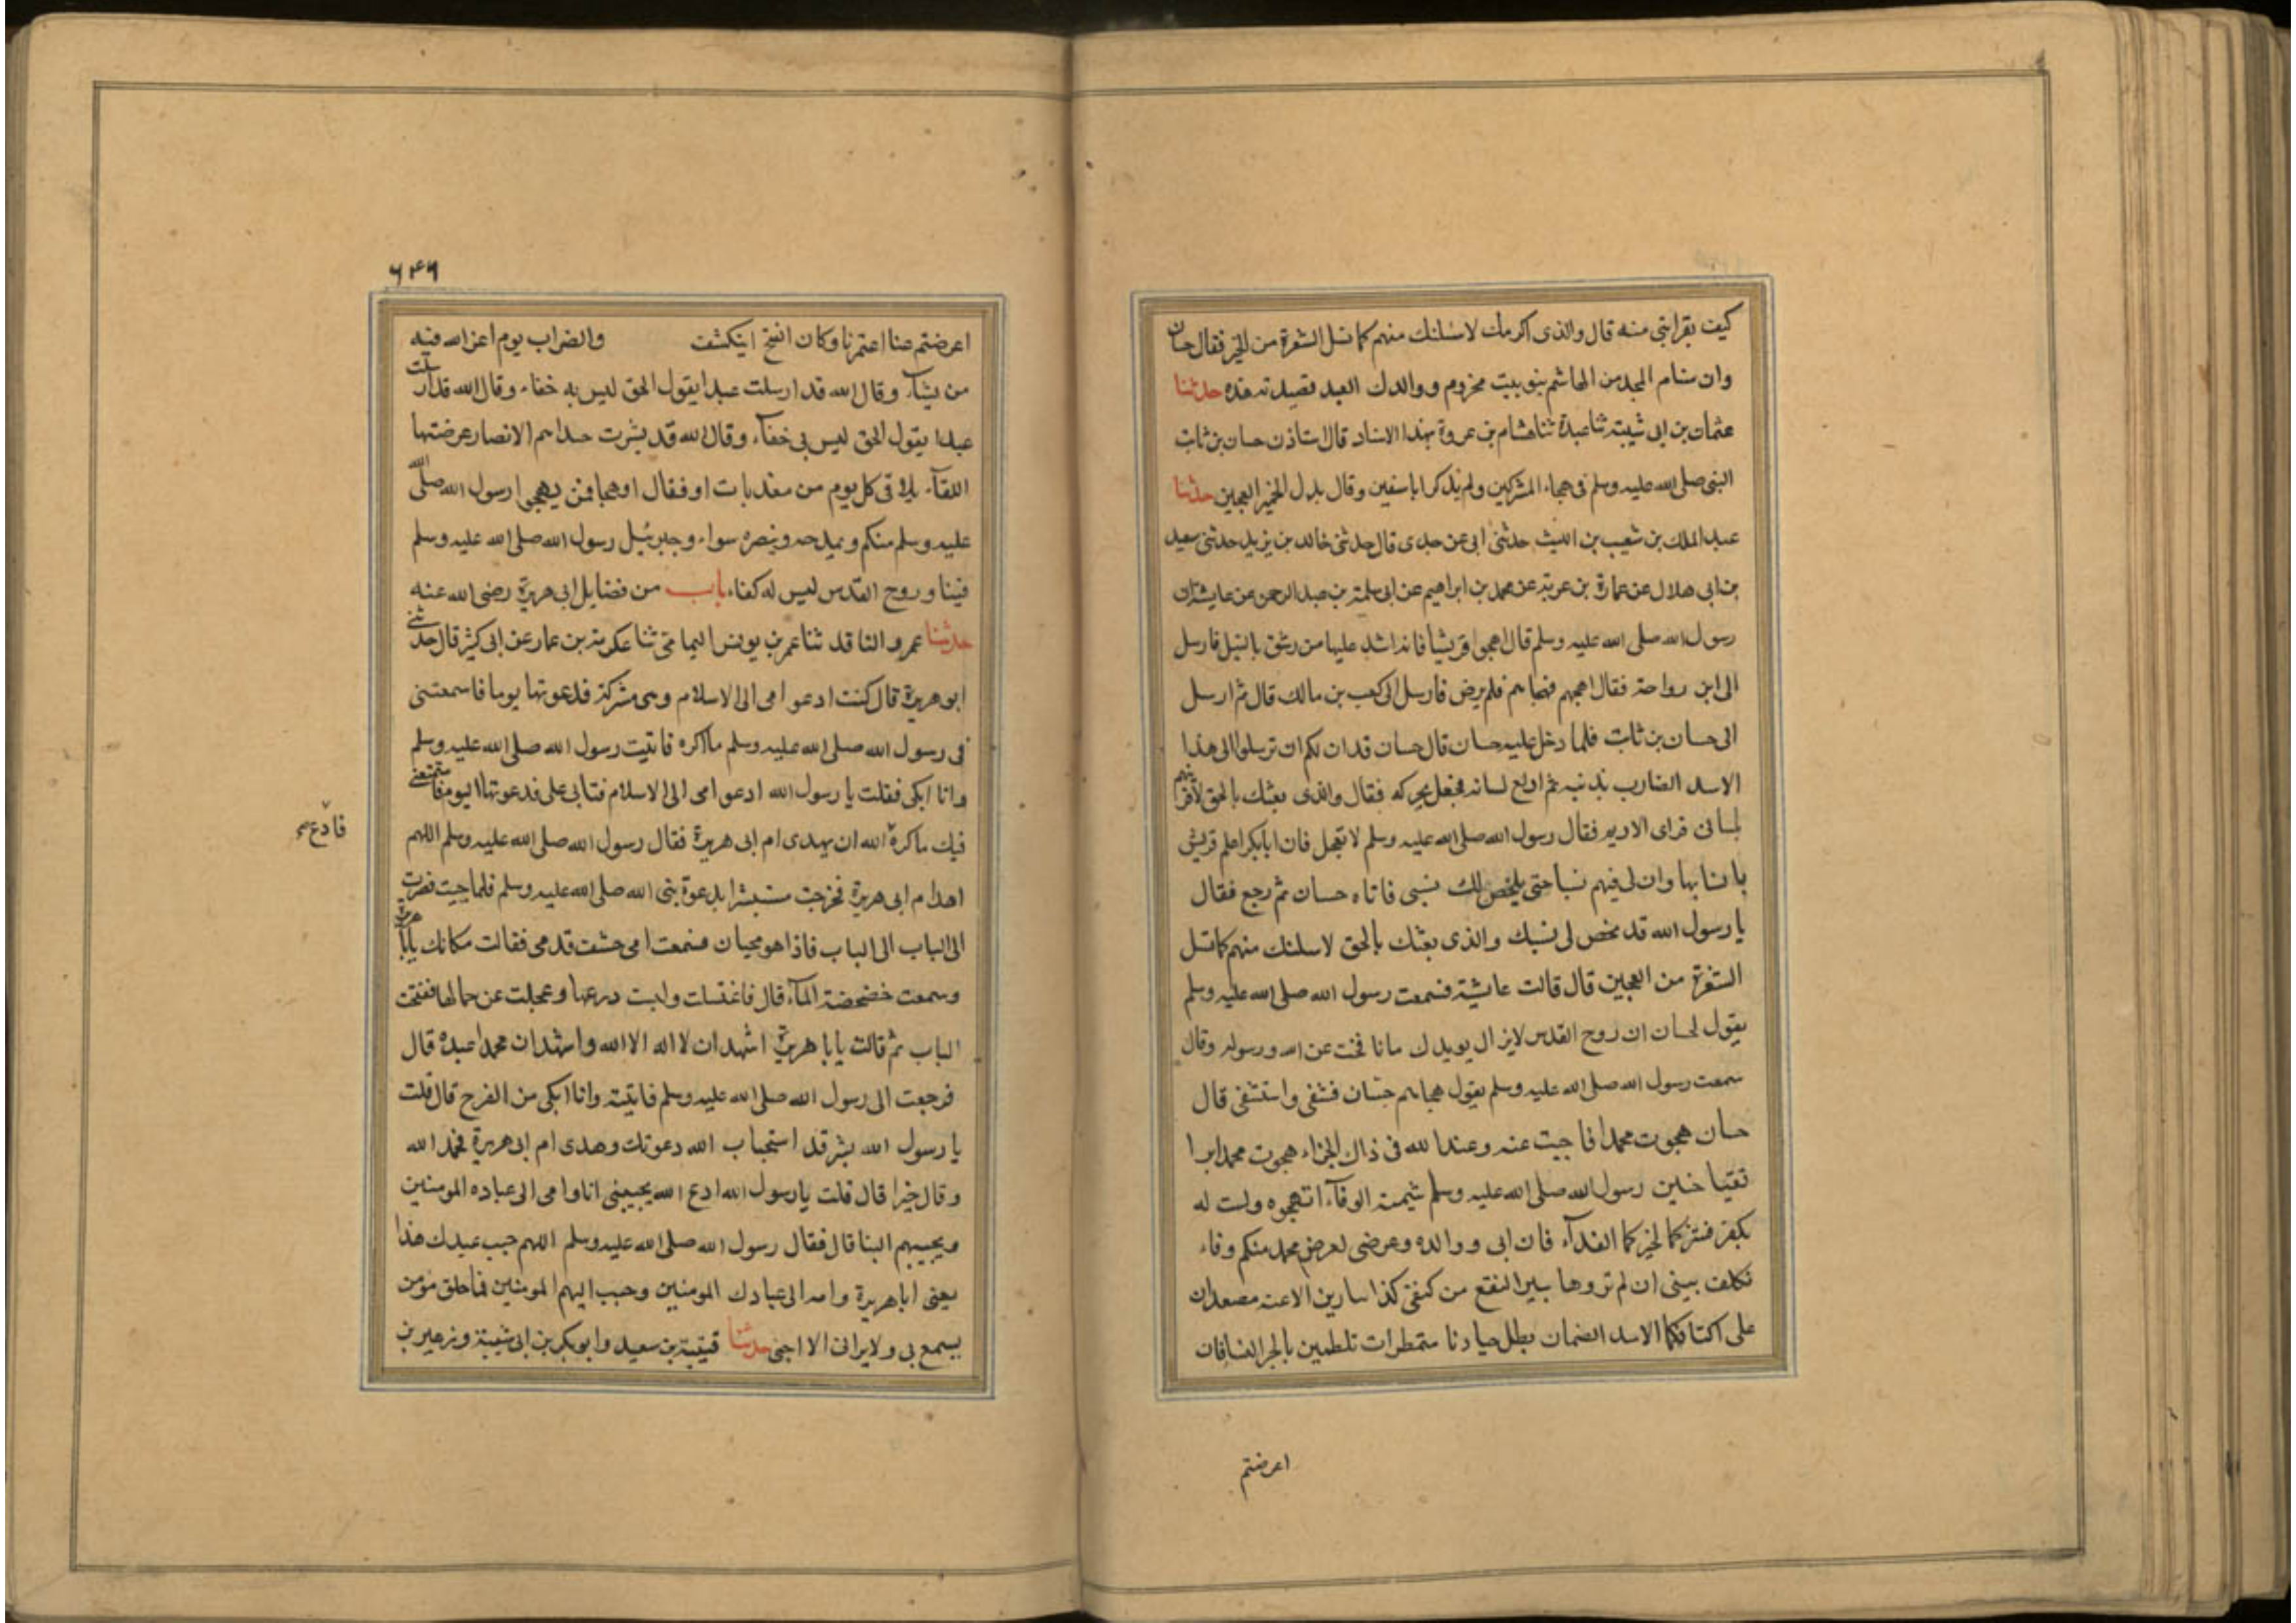 كيف بقرابتي منه قال والذي اكرمك لاسلنك منهم كما تسل الشعرة من الخمير فقال حسان
وان سنام المجد من الهاشم بنو بيت مخزوم ووالدك العبد قصيدته هذه حدثنا
عثمان بن ابي شيبة ثنا عبدة ثنا هشام بن عروة بهذا الاسناد قال استاذن حسان بن ثابت
النبي صلى الله عليه وسلم في هجاء المشركين ولم يذكر ابا سفين وقال بدل الخمير العجين حدثنا
عبد الملك بن شعيب بن الليث حدثني ابي عن جدي قال حدثني خالد بن يزيد حدثني سعيد
بن ابي هلال عن عمارة بن عزية عن محمد بن ابراهيم عن ابي سلمة بن عبد الرحمن عن عايشة ان
رسول الله صلى الله عليه وسلم قال اهجوا قريشا فانه اشد عليها من رشق بالنبل فارسل
الى ابن رواحة فقال اهجهم فهجاهم فلم يرض فارسل الى كعب بن مالك قال ثم ارسل
الى حسان بن ثابت فلما دخل عليه حسان قال حسان قد ان لكم ان ترسلوا الى هذا
الاسد الضارب بذنبه ثم ادلع لسانه فجعل يحركه فقال والذي بعثك بالحق لافرينهم
بلساني فراى الاديم فقال رسول الله صلى الله عليه وسلم لا تعجل فان ابا بكر اعلم قريش
بانسابها وان لي فيهم نسبا حتى يلخص لك نسبي فاتاه حسان ثم رجع فقال
يا رسول الله قد مخص لي نسبك والذي بعثك بالحق لاسلنك منهم كما تسل
الشعرة من العجين قال قالت عايشة فسمعت رسول الله صلى الله عليه وسلم
يقول لحسان ان روح القدس لا يزال يويدك ما نافحت عن الله ورسوله وقال
سمعت رسول الله صلى الله عليه وسلم يقول هجاهم حسان فشفى واستشفى قال
حسان هجوت محمدا فاجبت عنه وعند الله في ذاك الجزاء هجوت محمدا برا
تقيا حنين رسول الله صلى الله عليه وسلم شيمته الوفآء اتهجوه ولست له
بكفر فشركما لخيركما الفدآء فان ابي ووالده وعرضي لعرض محمد منكم وقاء
تكلف بيني ان لم تروها يبير النقع من كنفي كذا يبارين الاعنة مصعدات
على اكتافكما الاسد الضمان بطل جيادنا متمطرات تلطمين بالخمر
اعرضتم
٦٤٦
اعرضتم عنا اعتمرنا وكان الفتح اينكشف والضراب يوم اعز الله فيه
من يشآء وقال الله قد ارسلت عبدا يقول الحق ليس به خفاء وقال الله قد ارسلت
عبدا يقول الحق ليس بي خفآء وقال الله قد بشرت جدا هم الانصار عرضتها
اللقآء يلاقي كل يوم من معد بات او فقال او هجا فمن يهجوا رسول الله صلى الله
عليه وسلم منكم ويمدحه وينصره سواء وجبرئيل رسول الله صلى الله عليه وسلم
فينا وروح القدس ليس له كفاء باب من فضايل ابي هريرة رضي الله عنه
حدثنا عمرو الناقد ثنا عمر بن يونس اليمامي ثنا عكرمة بن عمار عن ابي كثير قال حدثني
ابو هريرة قال كنت ادعوا امي الى الاسلام وهي مشركة فدعوتها يوما فاسمعتني
في رسول الله صلى الله عليه وسلم ما اكره فاتيت رسول الله صلى الله عليه وسلم
وانا ابكي فقلت يا رسول الله ادعوا امي الى الاسلام فتابى علي فدعوتها اليوم فاسمعتني
فيك ما اكره الله ان يهدي ام ابي هريرة فقال رسول الله صلى الله عليه وسلم اللهم
فادع صح
اهد ام ابي هريرة فخرجت مستبشرا بدعوة نبي الله صلى الله عليه وسلم فلما جيت فصرت
الى الباب الى الباب فاذا هو مجيان فسمعت امي حشف قدمي فقالت مكانك يا ابا هريرة
وسمعت خضخضة المآء قال فاغتسلت ولبست درعها وعجلت عن خمارها ففتحت
الباب ثم قالت يا ابا هريرة اشهد ان لا اله الا الله واشهد ان محمدا عبده قال
فرجعت الى رسول الله صلى الله عليه وسلم فاتيته وانا ابكي من الفرح قال قلت
يا رسول الله بشر قد استجاب الله دعوتك وهدى ام ابي هريرة فحمد الله
وقال خيرا قال قلت يا رسول الله ادع الله يحببني انا وامي الى عباده المومنين
ويحببهم الينا قال فقال رسول الله صلى الله عليه وسلم اللهم حبب عبيدك هذا
يعني ابا هريرة وامه الى عبادك المومنين وحبب اليهم المومنين فما خلق مومن
يسمع بي ولا يراني الا احبني حدثنا قتيبة بن سعيد وابو بكر بن ابي شيبة وزهير بن